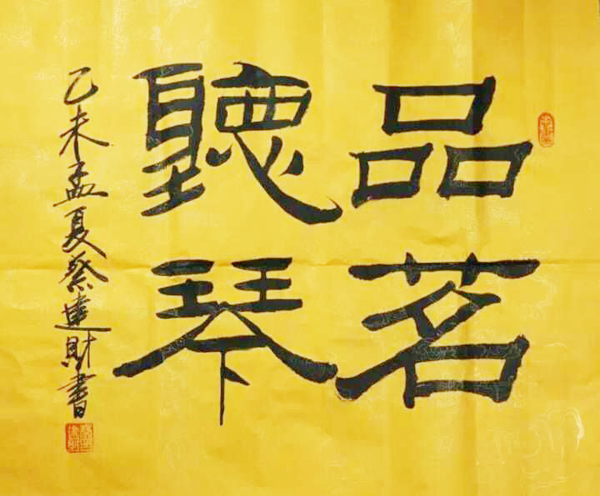 品茗
聽琴
乙未孟夏蔡建財書